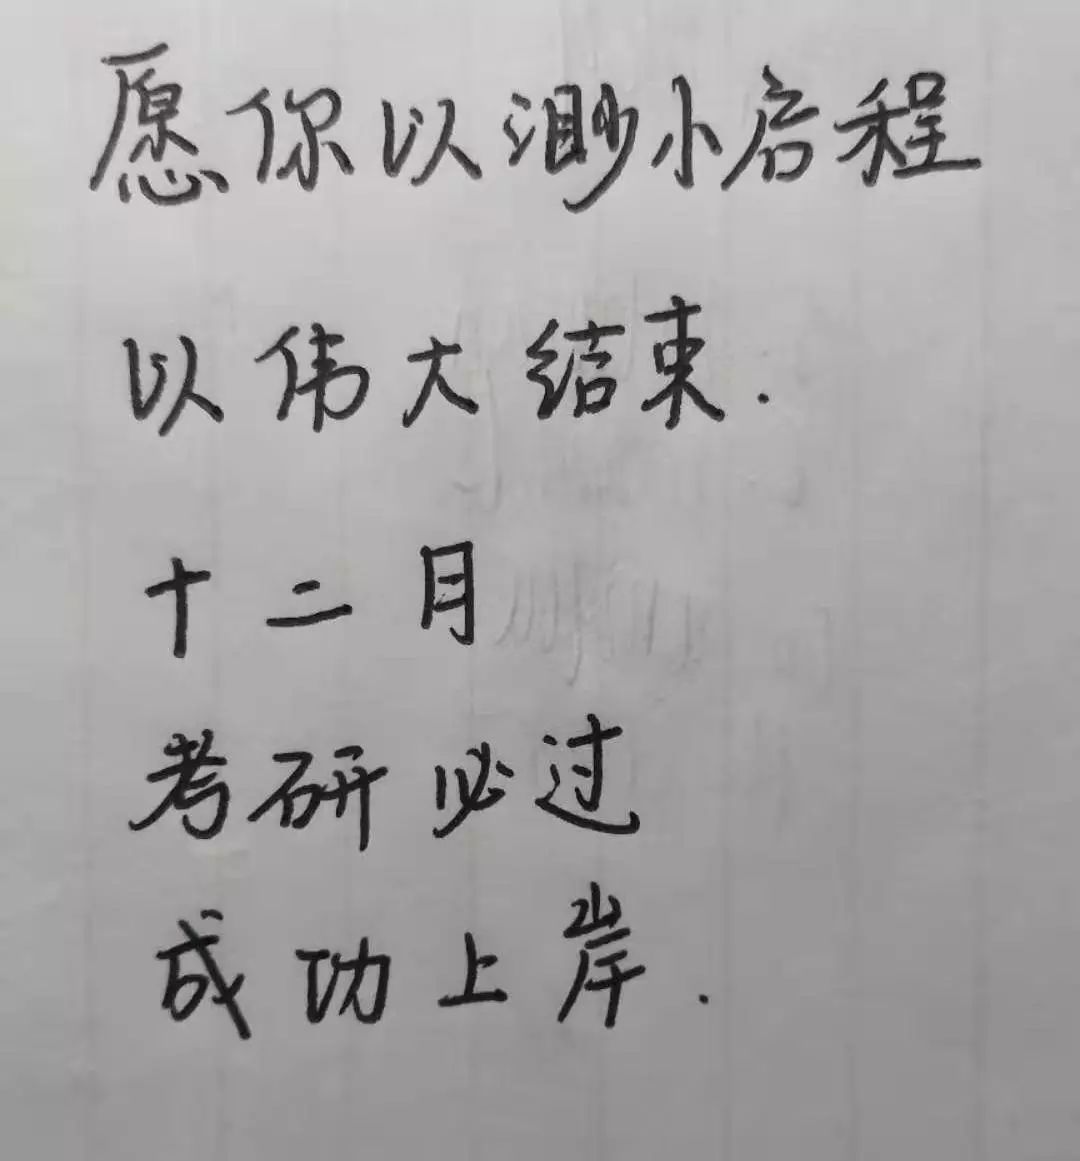 愿你以渺小启程
以伟大结束.
十二月
考研必过
成功上岸.